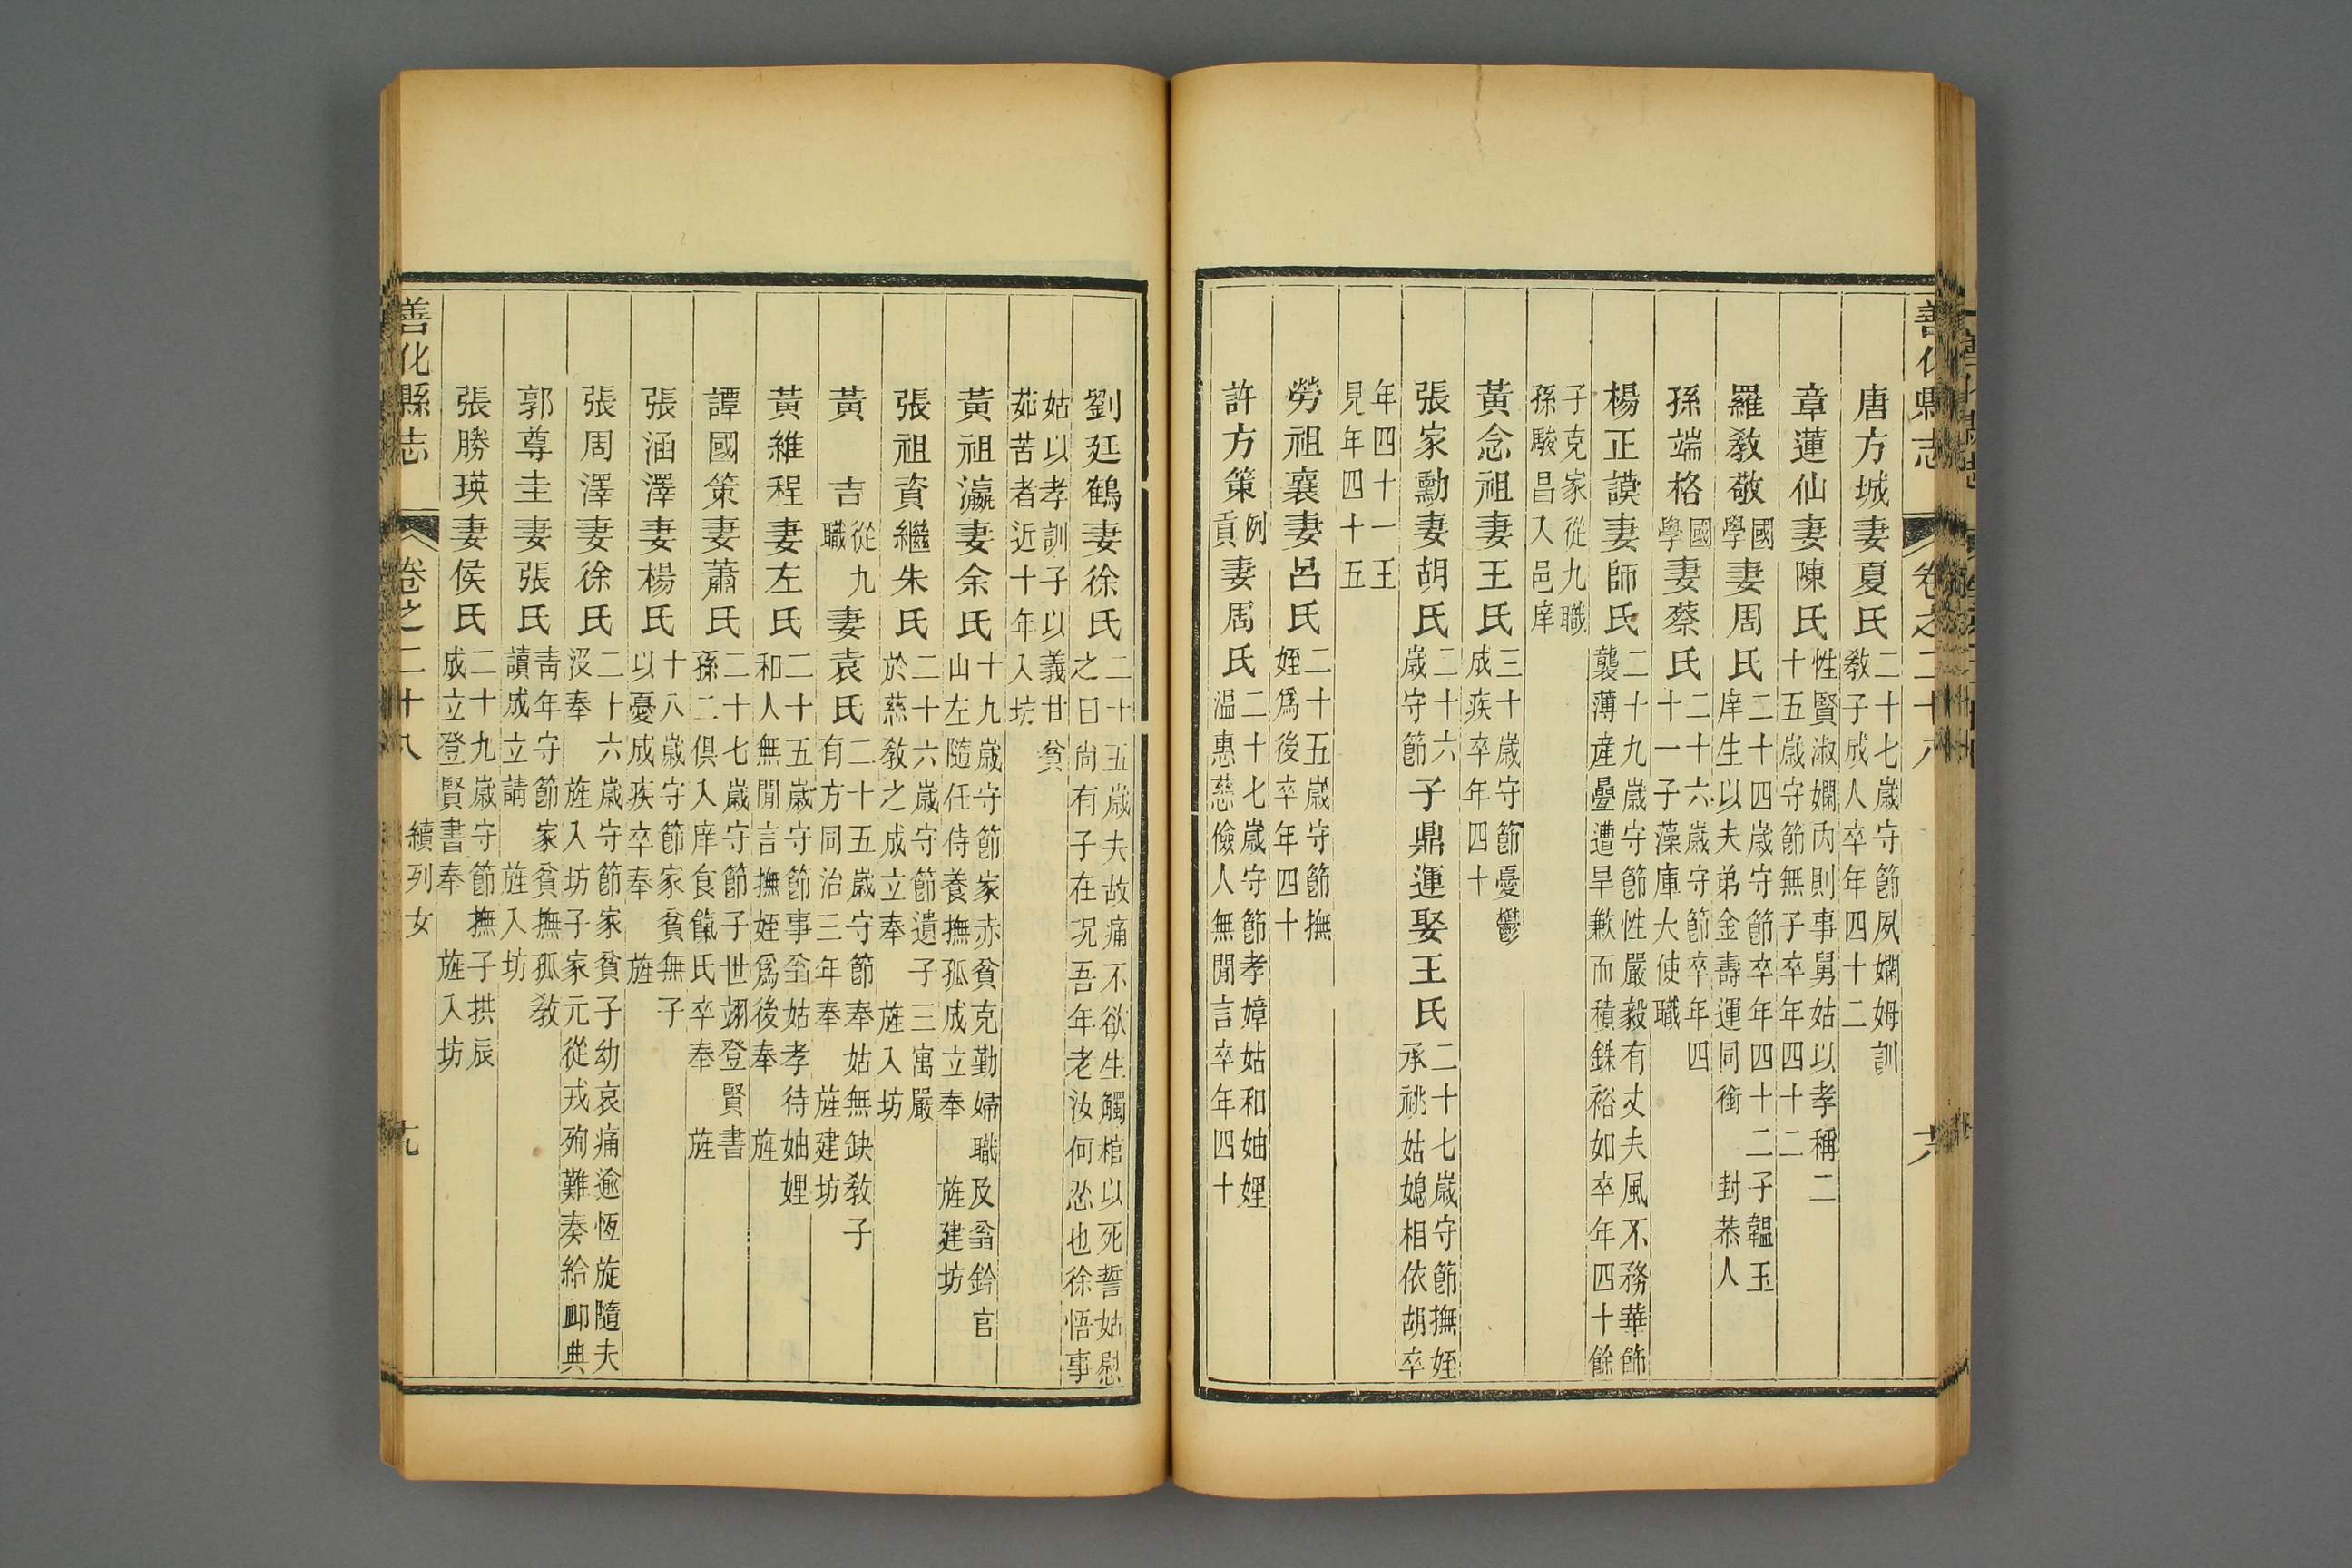 善化縣志 卷之二十八
唐方城妻夏氏 二十七歲守節夙嫻姆訓
教子成人卒年四十二
章蓮仙妻陳氏 性賢淑嫻內則事舅姑以孝稱二
十五歲守節無子卒年四十二
羅教敬國學妻周氏 二十四歲守節卒年四十二子韞玉
庠生以夫弟金壽運同銜 封恭人
孫端格國學妻蔡氏 二十六歲守節卒年四
十一子藻庫大使職
楊正謨妻師氏 二十九歲守節性嚴毅有丈夫風不務華飾
襲薄産疊遭旱歉而積銖裕如卒年四十餘
子克家從九職
孫駿昌入邑庠
黃念祖妻王氏 三十歲守節憂鬱
成疾卒年四十
張家勳妻胡氏 二十六歲守節 子鼎運娶王氏 二十七歲守節撫姪
承祧姑媳相依胡卒
年四十一王
見年四十五
勞祖襄妻呂氏 二十五歲守節撫
姪爲後卒年四十
許方策例貢妻周氏 二十七歲守節孝嫜姑和妯娌
温惠慈儉人無閒言卒年四十
劉廷鶴妻徐氏 二十五歲夫故痛不欲生觸棺以死誓姑慰
之曰尚有子在况吾年老汝何忍也徐悟事
姑以孝訓子以義甘貧
茹苦者近十年入坊
黃祖瀛妻余氏 十九歲守節家赤貧克勤婦職及翁鈐官
山左隨任侍養撫孤成立奉 旌建坊
張祖資繼朱氏 二十六歲守節遺子三寓嚴
於慈教之成立奉 旌入坊
黃 吉從九職妻袁氏 二十五歲守節奉姑無缺教子
有方同治三年奉 旌建坊
黃維程妻左氏 二十五歲守節事翁姑孝待妯娌
和人無閒言撫姪爲後奉 旌
譚國策妻蕭氏 二十七歲守節子世翊登賢書
孫二俱入庠食餼氏卒奉 旌
張涵澤妻楊氏 十八歲守節家貧無子
以憂成疾卒奉 旌
張周澤妻徐氏 二十六歲守節家貧子幼哀痛逾恆旋隨夫
沒奉 旌入坊子家元從戎殉難奏給卹典
郭尊圭妻張氏 靑年守節家貧撫孤敎
讀成立請 旌入坊
張勝瑛妻侯氏 二十九歲守節撫子拱辰
成立登賢書奉 旌入坊
善化縣志 卷之二十八 續列女